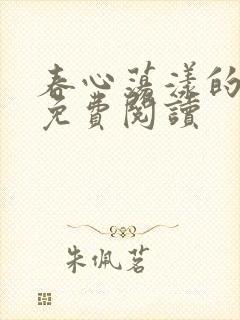 春心蕩漾的
免費閱讀
朱佩茗